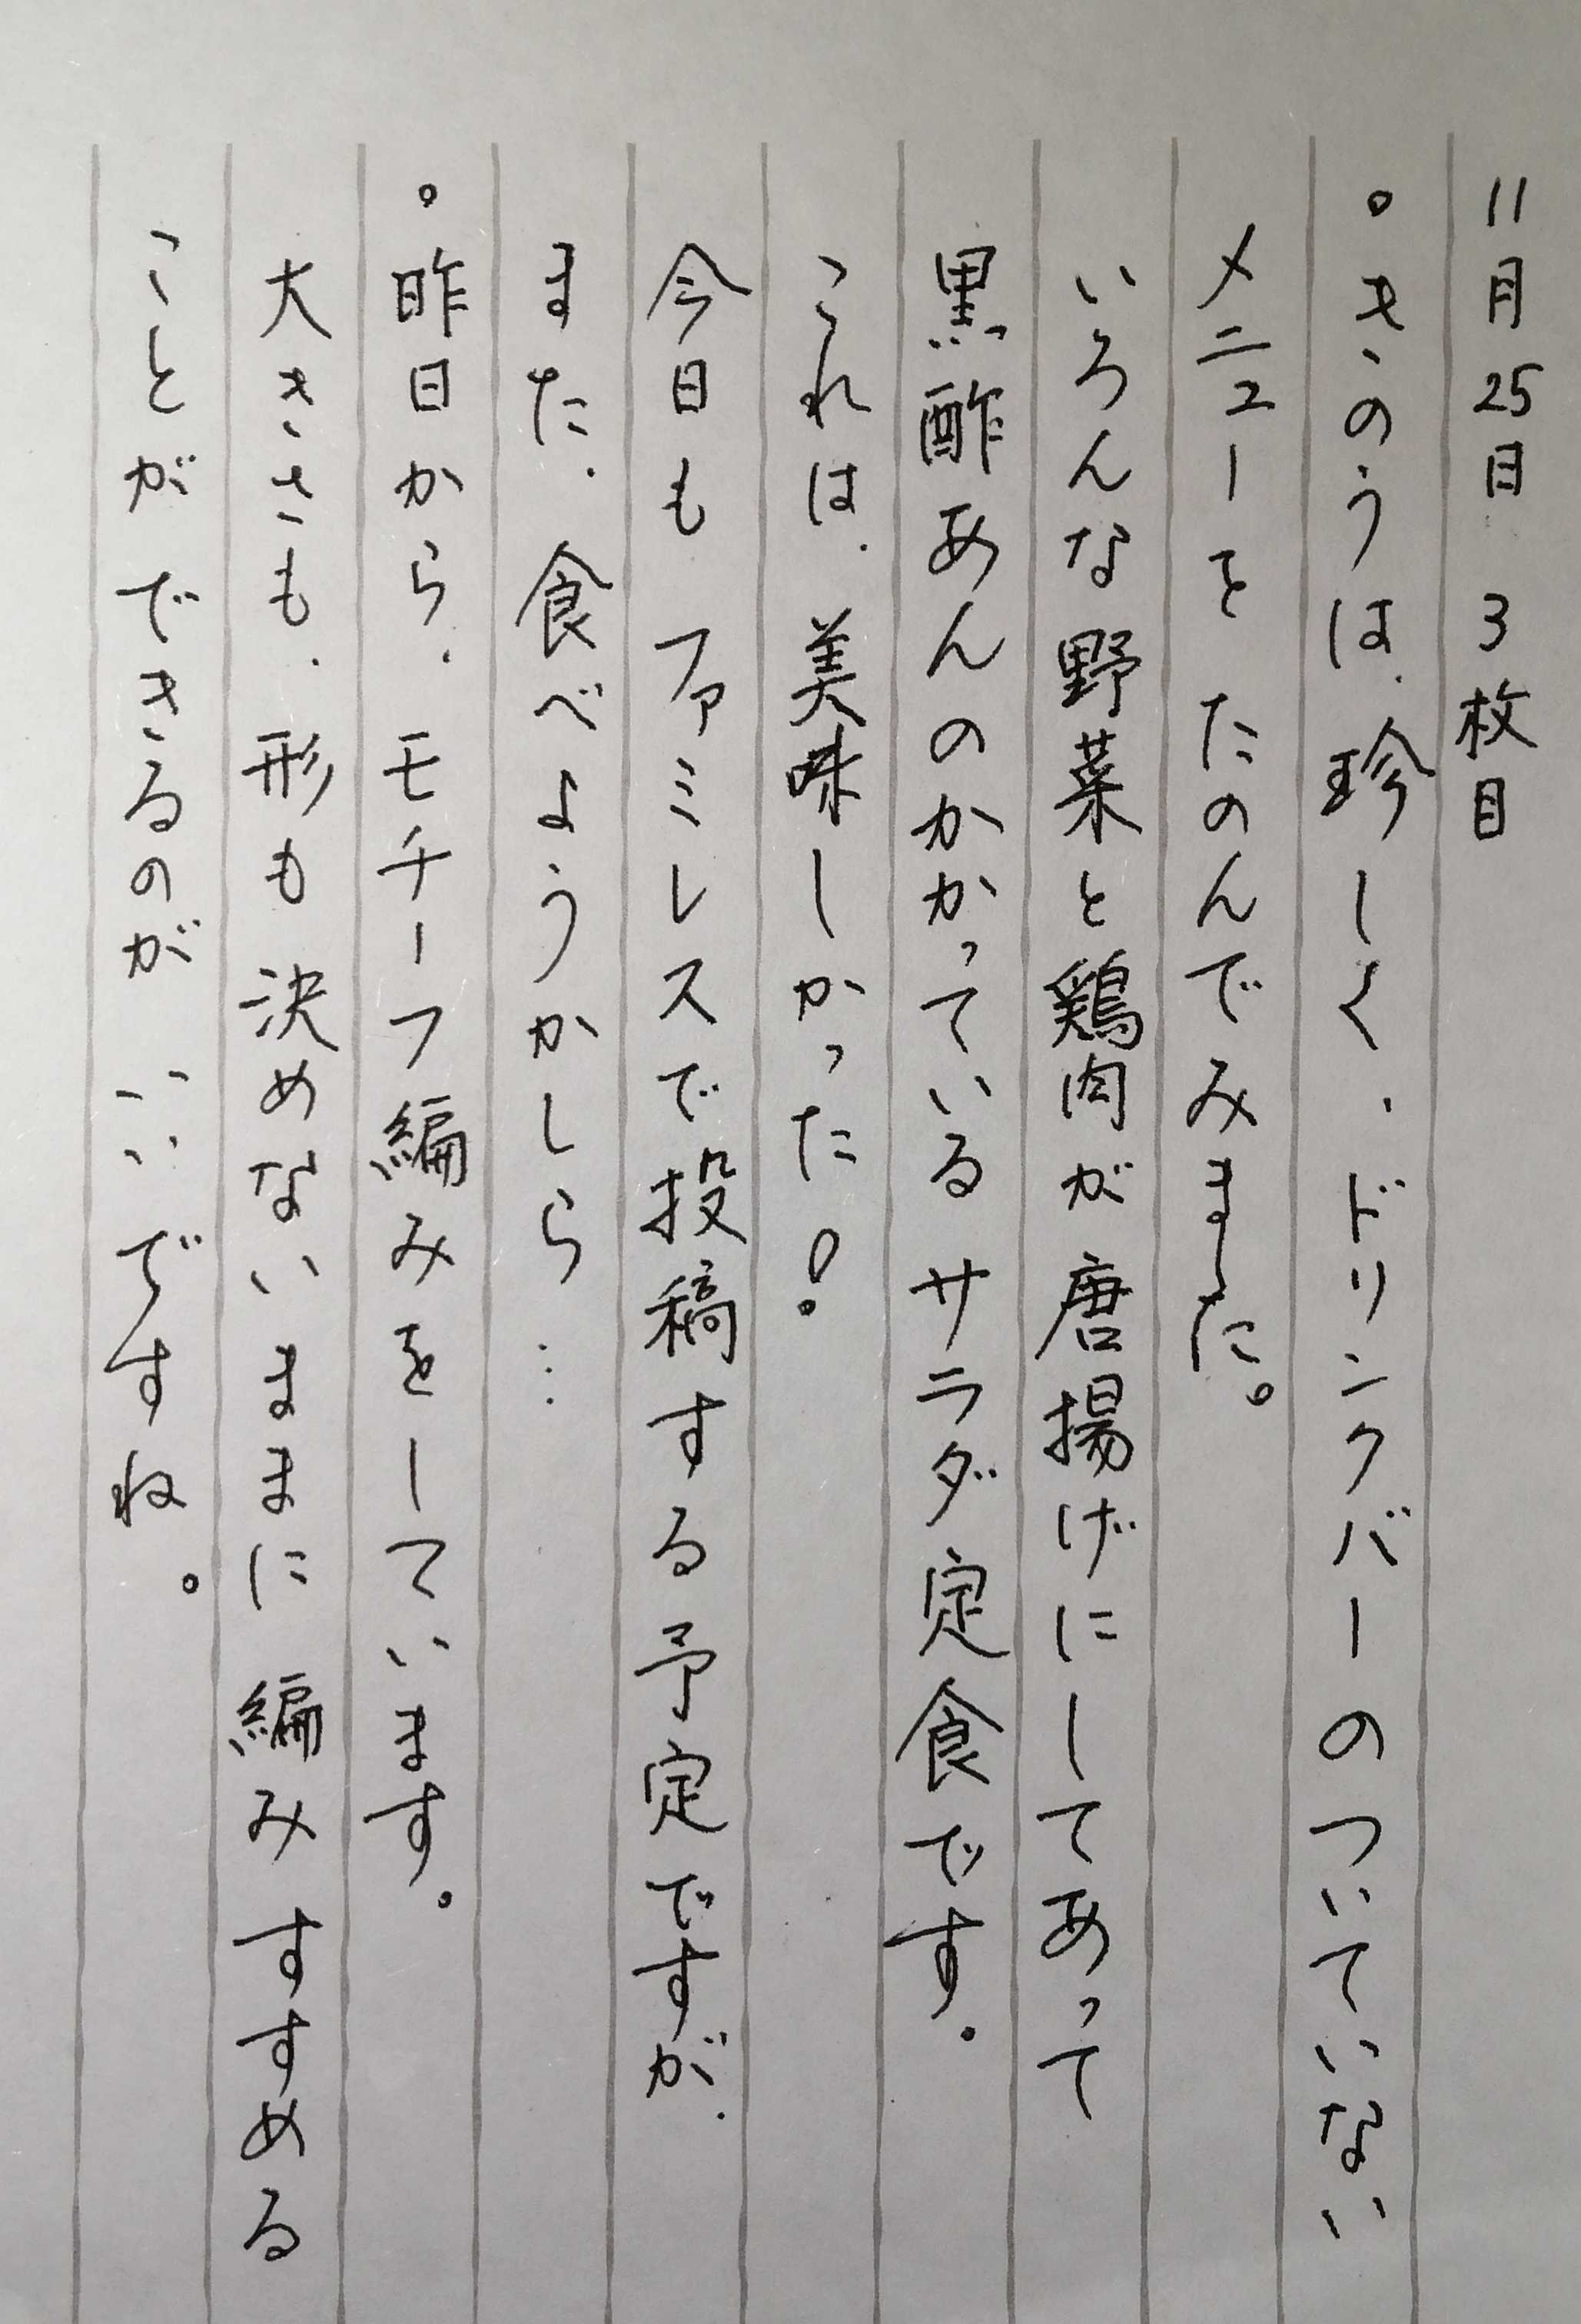 11月25日 3枚目
。きのうは、珍しく、ドリンクバーのついていない
メニューを たのんでみました。
いろんな野菜と鶏肉が唐揚げにしてあって
黒酢あんのかかっている サラダ定食です。
これは、美味しかった!
今日も ファミレスで投稿する予定ですが、
また、食べようかしら…
。昨日から、モチーフ編みをしています。
大きさも、形も決めないままに 編みすすめる
ことが できるのが いいですね。